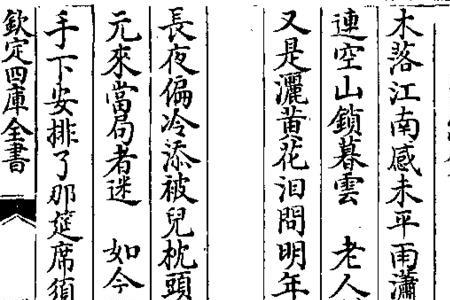 木落江南感未平雨瀟
連空山鎖暮雲 老人
又是灑黄花泪問明年
長夜偏冷添被兒枕頭
元來當局者迷 如今
手下安排了那筵席須
欽定四庫全書